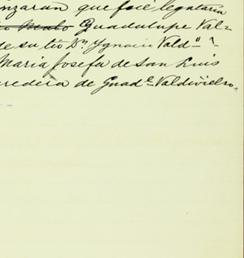 nzaran que fué legataria
Malo Guadalupe Val-
de su tio Dn Ygnacio Vald
Maria Josefa de San Luis
redera de Guade Valdivielso.